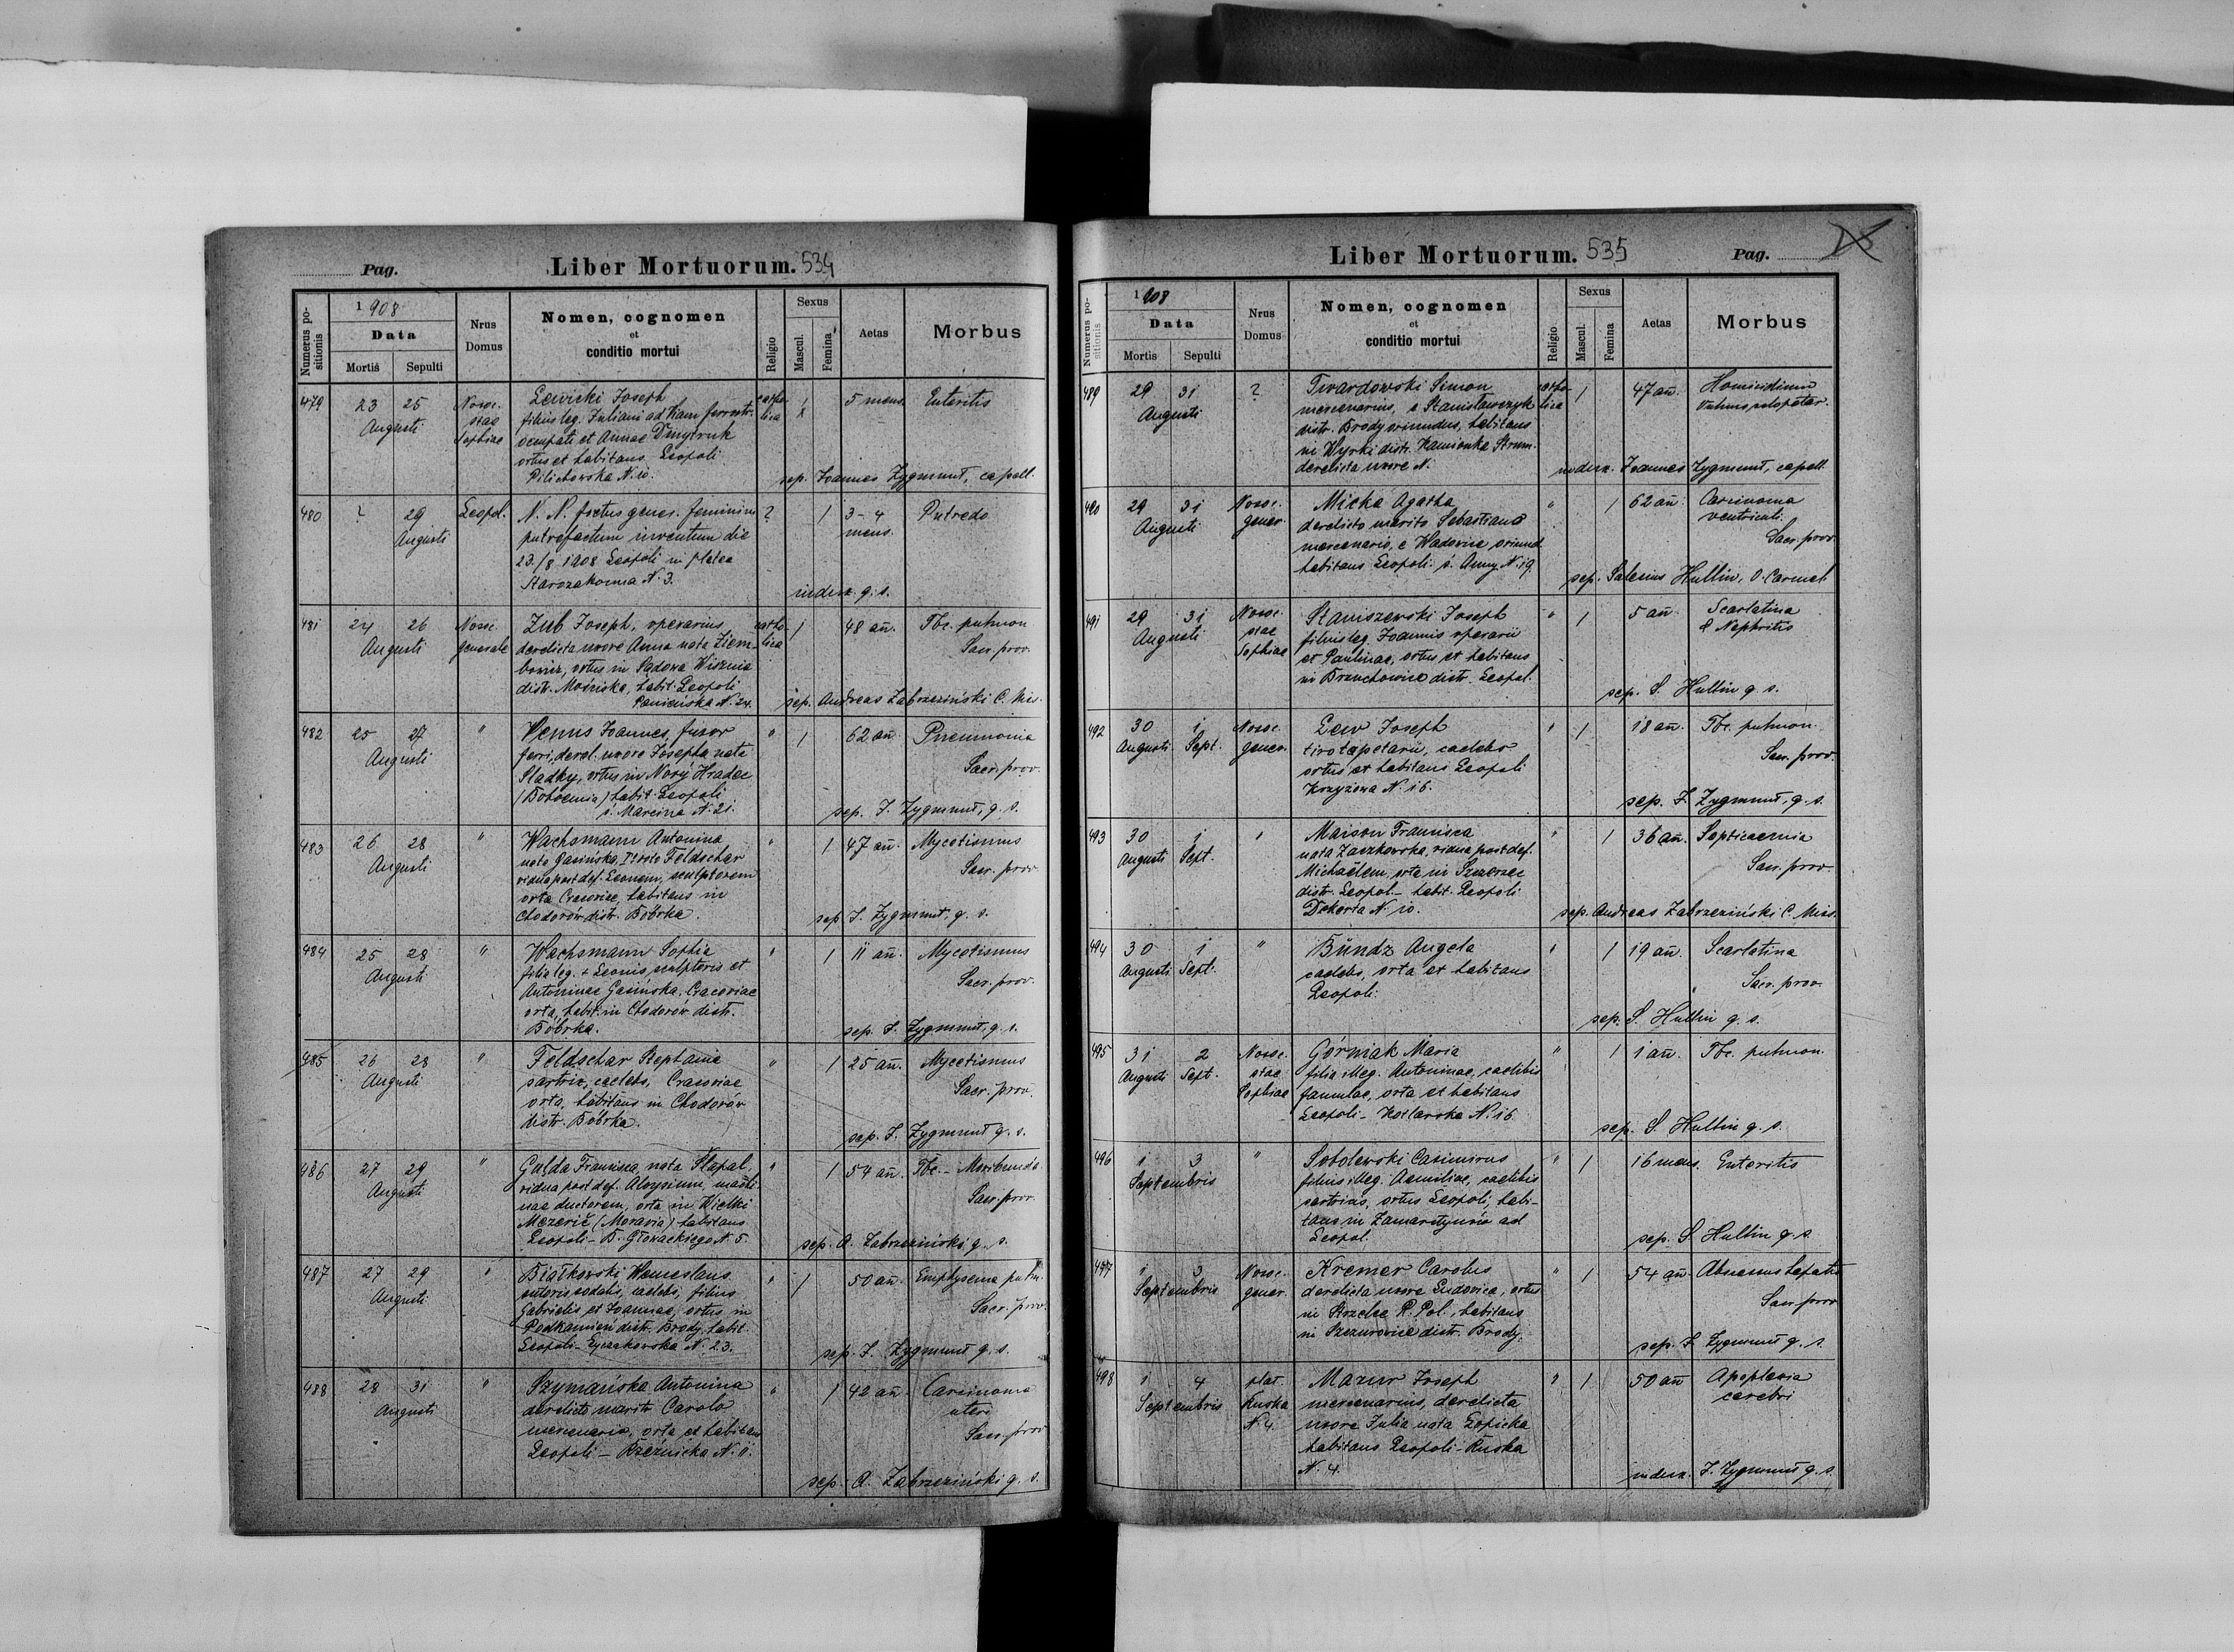 Pag.
Liber Mortuorum. 534
Numerus positionis
1908
Data
Mortis
Sepulti
Nrus Domus
Nomen, cognomen
et
conditio mortui
Religio
Sexus
Mascul.
Femina
Aetas
Morbus
479 23 25 Augusti Nosoc. stae Sophiae
Lewicki Joseph
filius leg. Juliani ad viam ferr.
occupati et Annae Dmytruk
ortus et habitans Leopoli
Pilichowska N. 10.
catholica 1 5 mens. Enteritis
sep. Joannes Zygmunt, capell.
480 ? 29 Augusti Leopol.
N. N. foetus gener. feminini
putrefactum inventum die
23/8 1908 Leopoli in platea
Starozakonna N. 3.
? 1 3-4 mens. Putredo
indux. q. s.
481 24 26 Augusti Nosoc. generale
Zub Joseph, operarius
derelicta uxore Anna nata Ziem-
bowicz, ortus in Sądowa Wisznia
distr. Mościska, habit. Leopoli
Panieńska N. 24.
catholica 1 48 añ. Tbc. pulmon
Sacr. prov.
sep. Andreas Zabrzeziński C. Mis.
482 25 27 Augusti "
Venus Joannes, fusor
ferri, derel. uxore Josepha nata
Sladky, ortus in Nový Hradec
(Bohemia) habit. Leopoli
ś. Marcina N. 21.
" 1 62 añ. Pneumonia
Sacr. prov.
sep. J. Zygmunt, q. s.
483 26 28 Augusti "
Wachsmann Antonina
nata Gasińska, I° voto Feldschar
vidua post def. Leonem, sculptorem
orta Cracoviae, habitans in
Chodorów distr. Bóbrka.
" 1 47 añ. Mycetismus
Sacr. prov.
sep. J. Zygmunt, q. s.
484 25 28 Augusti "
Wachsmann Sophia
filia leg. + Leonis, sculptoris et
Antoninae Gasińska, Cracoviae
orta, habit. in Chodorów distr.
Bóbrka.
" 1 11 añ. Mycetismus
Sacr. prov.
sep. J. Zygmunt, q. s.
485 26 28 Augusti "
Feldschar Stephanie
sartrix, caelebs, Cracoviae
orta, habitans in Chodorów
distr. Bóbrka.
" 1 25 añ. Mycetismus
Sacr. prov.
sep. J. Zygmunt q. s.
486 27 29 Augusti "
Gulda Francisca, nata Šlapal
vidua post def. Aloysium, machi-
nae ductorem, orta in Wielki
Mezerič (Moravia) habitans
Leopoli - B. Głowackiego N. 5.
" 1 54 añ. Tbc. - Moribunda
Sacr. prov.
sep. A. Zabrzeziński q. s.
487 27 29 Augusti "
Białkowski Wenceslaus
sodalis, caelebs, filius
Gabrielis et Joannae, ortus in
Podkamień distr. Brody, habit.
Leopoli - Łyczakowska N. 23.
" 1 50 añ. Emphysema pulm.
Sacr. prov.
sep. J. Zygmunt q. s.
488 28 31 Augusti "
Szymańska Antonina
derelicto marito Carolo
mercenario, orta et habitans
Leopoli - Rzeźnicka N. 11.
" 1 42 añ. Carcinoma
uteri
Sacr. prov
sep. A. Zabrzeziński q. s.
Liber Mortuorum. 535
Pag.
Numerus positionis
1908
Data
Mortis
Sepulti
Nrus Domus
Nomen, cognomen
et
conditio mortui
Religio
Sexus
Mascul.
Femina
Aetas
Morbus
489 29 31 Augusti ?
Twardowski Simon
mercenarius, e Stanisławczyk
distr. Brody oriundus, habitans
in Wyrki distr. Kamionka Strum.
derelicta uxore N.
catholica 1 47 añ. Homicidium
indux. Joannes Zygmunt, capell.
490 29 31 Augusti Nosoc. gener.
Micka Agatha
derelicto marito Sebastiano
mercenario, e Wadowice oriund.
habitans Leopoli - ś. Anny N. 19
" 1 62 añ. Carcinoma
ventriculi.
Sacr. prov
sep. Salesius Hullin, O. Carmel.
491 29 31 Augusti Nosoc. stae Sophiae
Staniszewski Joseph
filius leg. Joannis operarii
et Paulinae, ortus et habitans
in Brzuchowice distr. Leopol.
" 1 5 añ. Scarlatina
& Nephritis
sep. S. Hullin q. s.
492 30 Augusti 1 Sept. Nosoc. gener.
Lew Joseph
tiro tapetarii, caelebs
ortus et habitans Leopoli
Krzyżowa N. 16.
" 1 18 añ. Tbc. pulmon.
Sacr. prov.
sep. J. Zygmunt, q. s.
493 30 Augusti 1 Sept. "
Maison Francisca
nata Zaczkowska, vidua post def.
Michaëlem, orta in Szczerzec
distr. Leopol. - habit. Leopoli
Dekerta N. 10.
" 1 36 añ. Septicaemia
Sacr. prov.
sep. Andreas Zabrzeziński C. Miss.
494 30 Augusti 1 Sept. "
Bündz Angela
caelebs, orta et habitans
Leopoli.
" 1 19 añ. Scarlatina
Sacr. prov.
sep. S. Hullin q. s.
495 31 Augusti 2 Sept. Nosoc. stae Sophiae
Górniak Maria
filia illeg. Antoninae, caelibis
famulae, orta et habitans
Leopoli - Kotlarska N. 16
" 1 1 añ. Tbc. pulmon.
sep. S. Hullin q. s.
496 1 3 Septembris "
Sobolewski Casimirus
filius illeg. Aemiliae, caelibis
sartricis, ortus Leopoli, habi-
tans in Zamarstynów ad
Leopol.
" 1 16 mens. Enteritis
sep. S. Hullin q. s.
497 1 3 Septembris Nosoc. gener.
Kremer Carolus
derelicta uxore Ludovica, ortus
in Strzelce R. Pol., habitans
in Szczurowice distr. Brody.
" 1 54 añ. Abscessus hepatis
Sacr. prov
sep. J. Zygmunt q. s.
498 1 4 Septembris plat. Ruska N. 4.
Mazur Joseph
mercenarius, derelicta
uxore Julia nata Łopicka
habitans Leopoli - Ruska
N. 4.
" 1 50 añ Apoplexia
cerebri
indux. J. Zygmunt q. s.